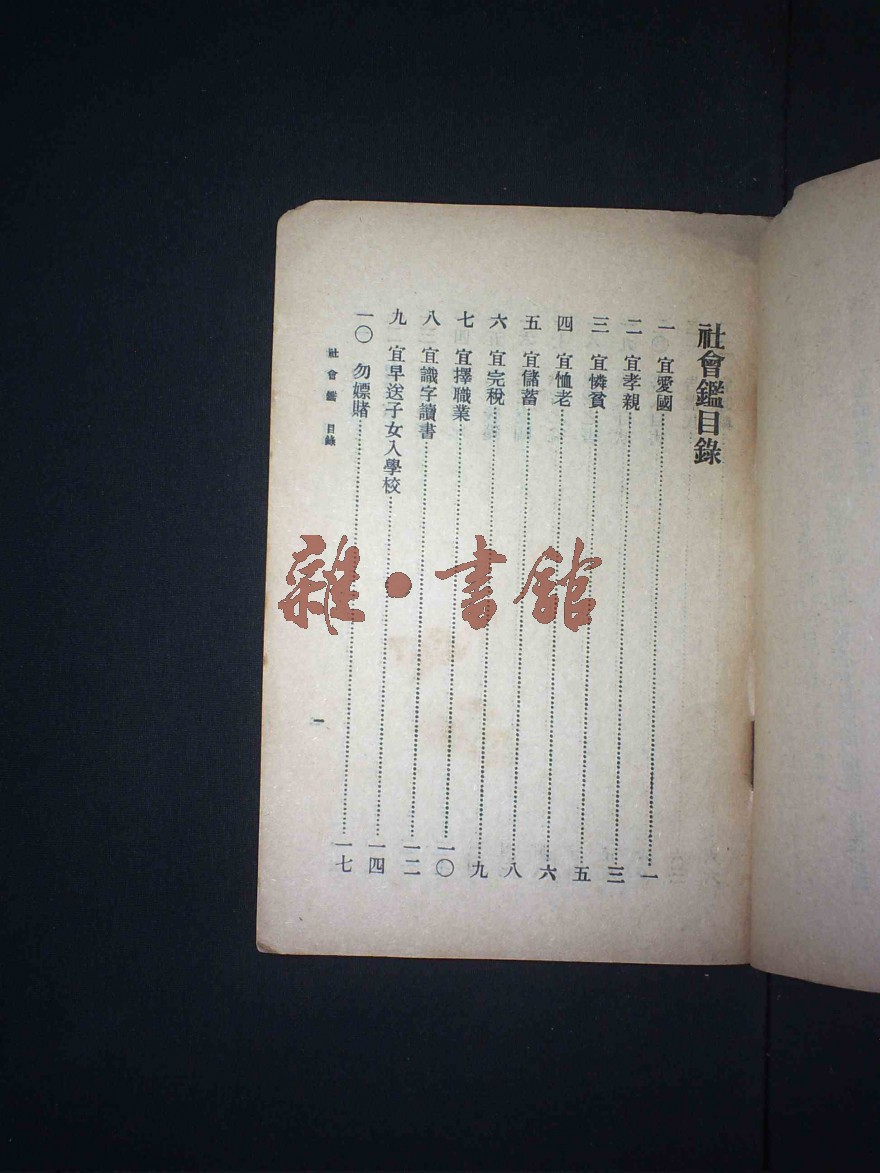 社會鑑目錄
一 宜愛國……一
二 宜孝親……三
三 宜憐貧……五
四 宜恤老……六
五 宜儲蓄……八
六 宜完稅……九
七 宜擇職業……一〇
八 宜識字讀書……一二
九 宜早送子女入學校……一四
一〇 勿嫖賭……一七
社會鑑 目錄
一
雜·書館